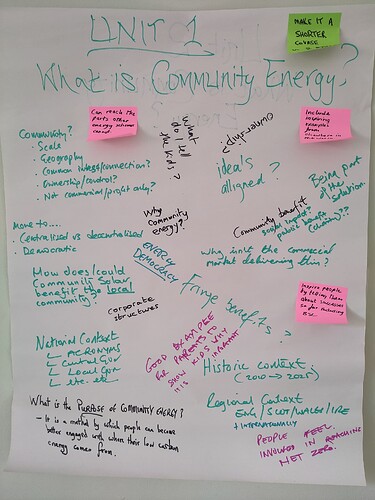 UNIT 1
MAKE IT A
SHORTER
COURSE
What is Community Energy?
Can reach the
parts other
energy schemes
cannot
What
do I tell
the kids?
Ownership?
Include
inspiring
examples
from
Community?
· Scale
· Geography
· Common interest/connection?
· Ownership/control?
· Not commercial/profit only?
idea's
aligned?
Being part
of the
solution.
Why
community
energy?
Community benefit
social impact?
public benefit
(charity)?
Move to....
· Centralised vs decentralised
· Democratic
ENERGY
DEMOCRACY
Why isn't the commercial
market delivering this?
How does/could
Community Solar
benefit the local
community?
Fringe benefits?
corporate
structures
Inspire people
by telling them
about successes
so far including
National Context
ACRONYMS
Central Gov
Local Gov
etc. etc
GOOD EXAMPLE
FOR PARENTS TO
SHOW KIDS WHY
IT IS IMPORTANT
Historic context
(2010 → 2025)
What is the PURPOSE of COMMUNITY ENERGY?
- It is a method by which people can become
better engaged with where their low carbon
energy comes from.
Regional Context
ENG/SCOT/WALES/IRE
+ INTERNATIONALLY
PEOPLE FEEL
INVOLVED IN REACHING
NET ZERO.